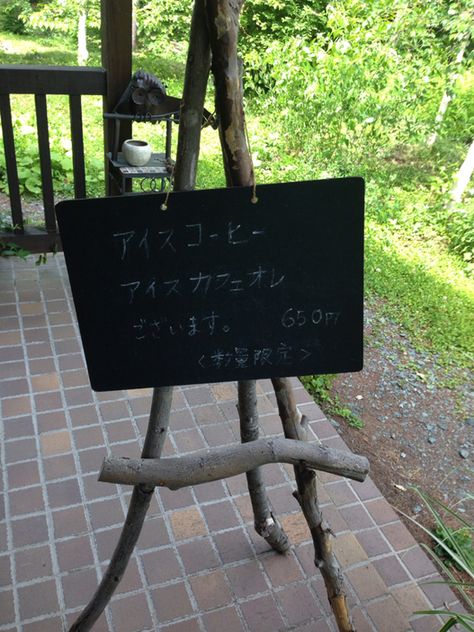 アイスコーヒー
アイスカフェオレ
ございます。 650円
＜数量限定＞